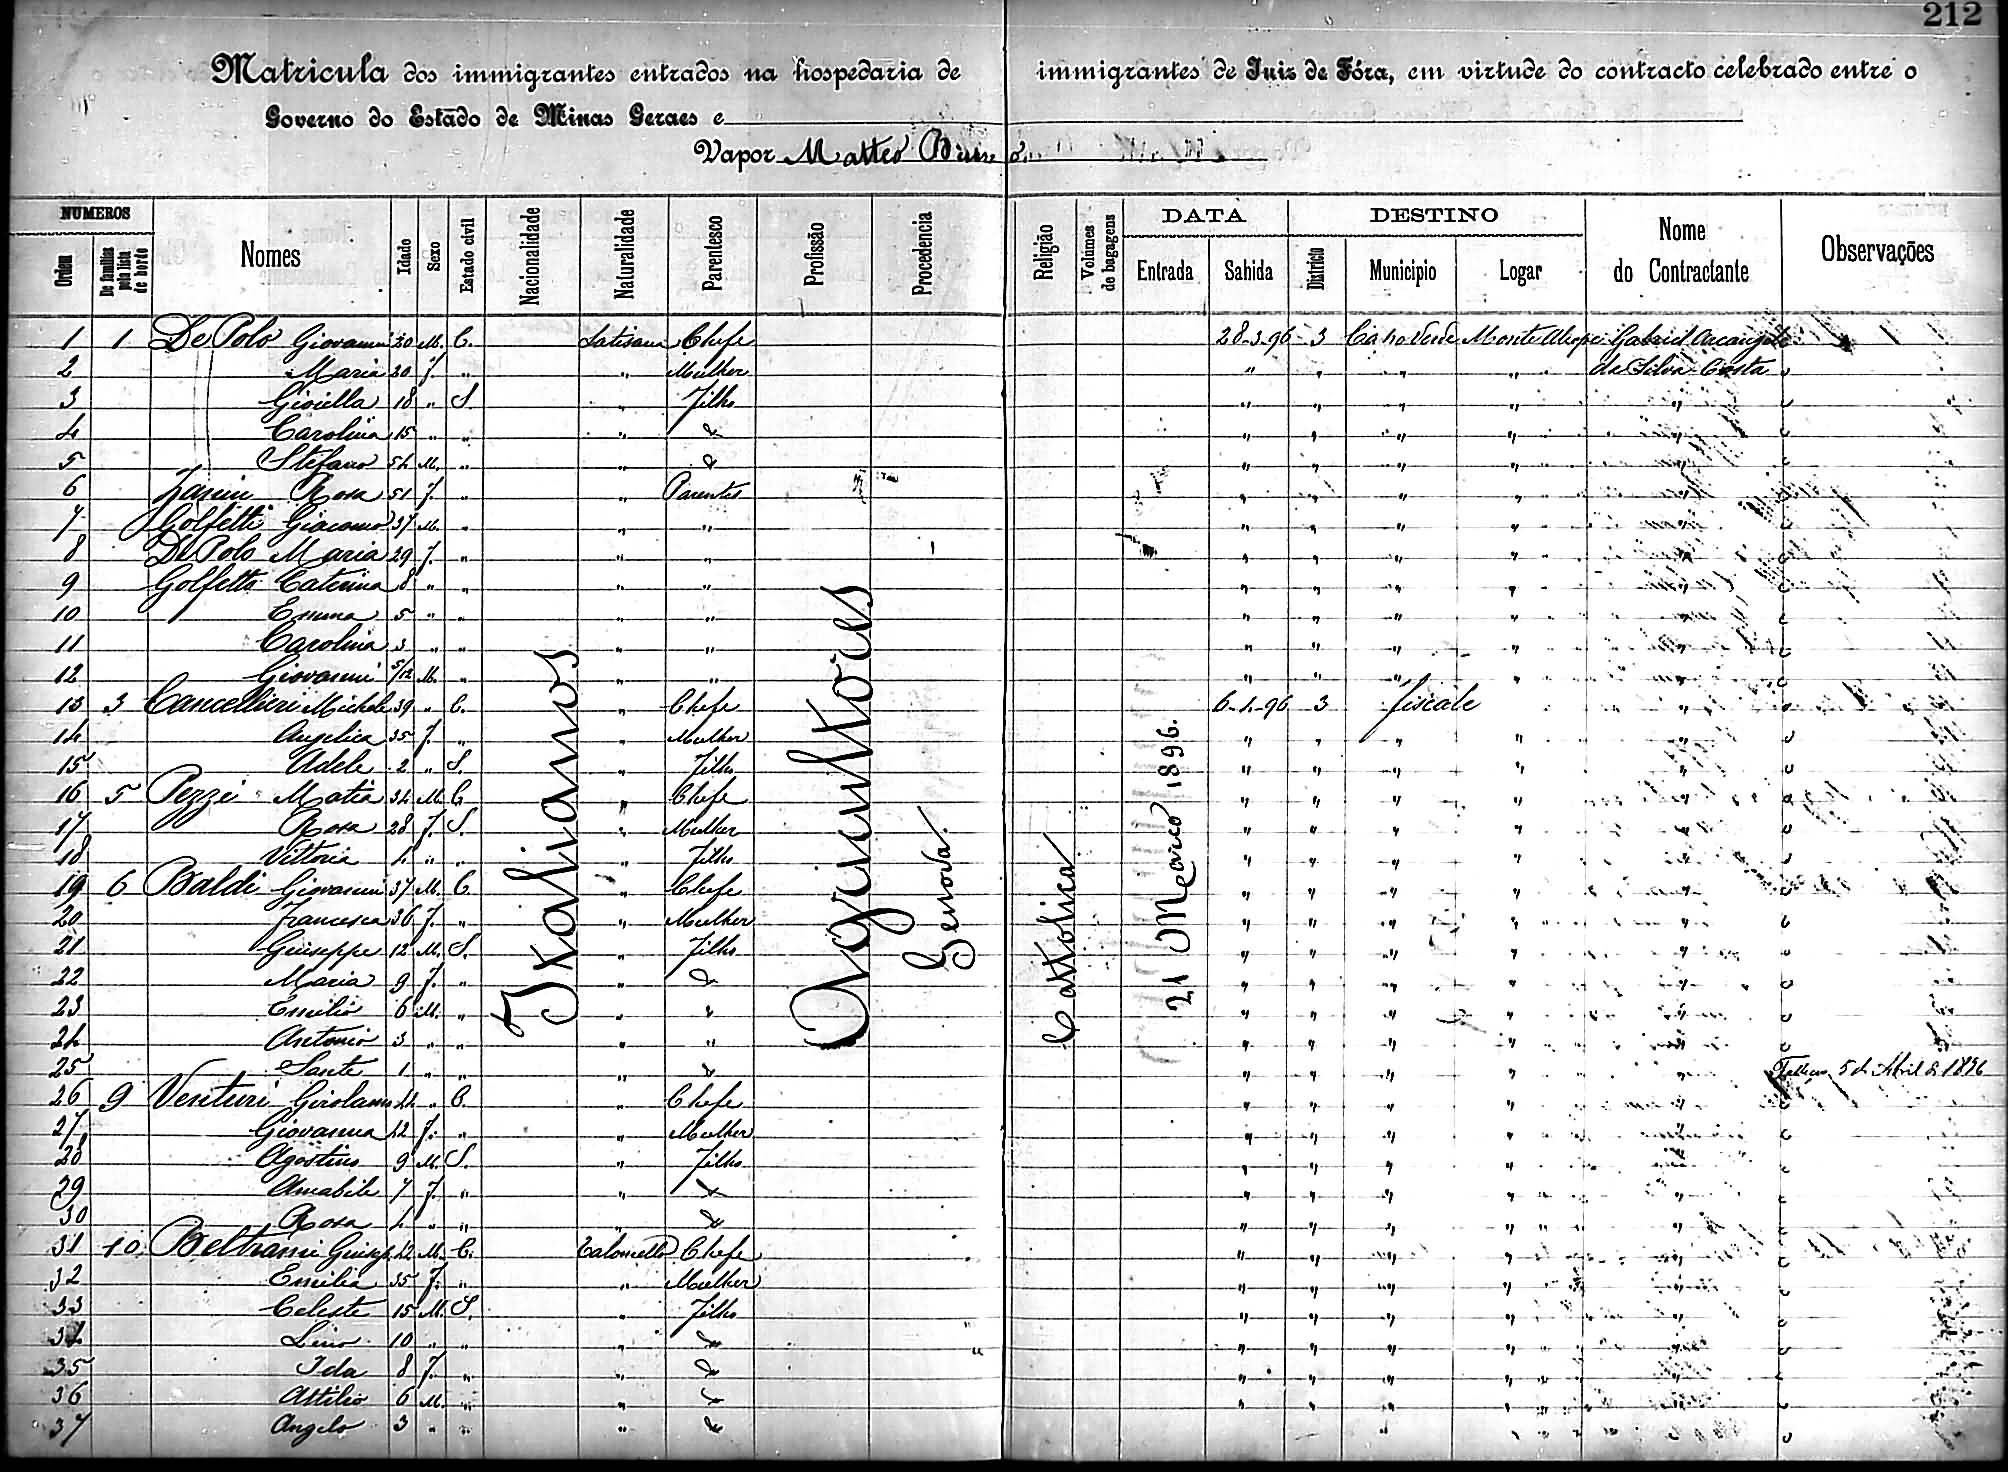 212
Matricula dos immigrantes entrados na hospedaria de immigrantes de Juiz de Fóra, em virtude do contracto celebrado entre o
Governo do Estado de Minas Geraes e
Vapor Matteo Bruzzo
NUMEROS DATA DESTINO
Ordem De familias pela lista de bordo Nomes Idade Sexo Estado civil Nacionalidade Naturalidade Parentesco Profissão Procedencia Religião Volumes de bagagens Entrada Sahida Districto Municipio Logar Nome do Contractante Observações
1 1 De Polo Giovanni 20 M. C. Latisana Chefe 28-3-96 3 Cabo Verde Monte Alegre Gabriel Arcangelo
2 Maria 20 F. " " Mulher " " " " da Silva Costa "
3 Gioiella 18 " S. " Filho " " " " " "
4 Carolina 15 " " " " " " " " " "
5 Stefano 54 M. " " " " " " " " "
6 Zanin Rosa 51 F. " " Parentes " " " " " "
7 Golfetti Giacomo 37 M. " " " " " " " " "
8 De Polo Maria 29 F. " " " " " " " " "
9 Golfetto Caterina 8 " " " " " " " " " "
10 Emma 5 " " " " " " " " " "
11 Carolina 3 " " " " " " " " " "
12 Giovanni 5/12 M. " " " " " " " " "
13 3 Cancellieri Michele 39 " C. " Chefe 6-4-96 3 fiscale " "
14 Angelica 35 F. " " Mulher " " " " " "
15 Adele 2 " S. " Filho " " " " " "
16 5 Pezzi Matia 34 M. C. " Chefe " " " " " "
17 Rosa 28 F. S. " Mulher " " " " " "
18 Vittoria 4 " " " Filho " " " " " "
19 6 Baldi Giovanni 37 M. C. " Chefe " " " " " "
20 Francesca 36 F. " " Mulher " " " " " "
21 Giuseppe 12 M. S. " Filho " " " " " "
22 Maria 9 F. " " " " " " " " "
23 Emilio 6 M. " " " " " " " " "
24 Antonio 3 " " " " " " " " " "
25 Sante 1 " " " " " " " " " Falleceu 5 de Abril de 1896
26 9 Venturi Girolamo 44 " C. " Chefe " " " " " "
27 Giovanna 42 F. " " Mulher " " " " " "
28 Agostino 9 M. S. " Filho " " " " " "
29 Amabile 7 F. " " " " " " " " "
30 Rosa 4 " " " " " " " " " "
31 10 Beltrami Giusep. 42 M. C. Chefe " " " " " "
32 Emilia 35 F. " " Mulher " " " " " "
33 Celeste 15 M. S. " Filho " " " " " "
34 Lino 10 " " " " " " " " " "
35 Ida 8 F. " " " " " " " " "
36 Attilio 6 M. " " " " " " " " "
37 Angelo 3 " " " " " " " " " "
Italianos
Agricultores
Genova
Cattolica
21 Março 1896.